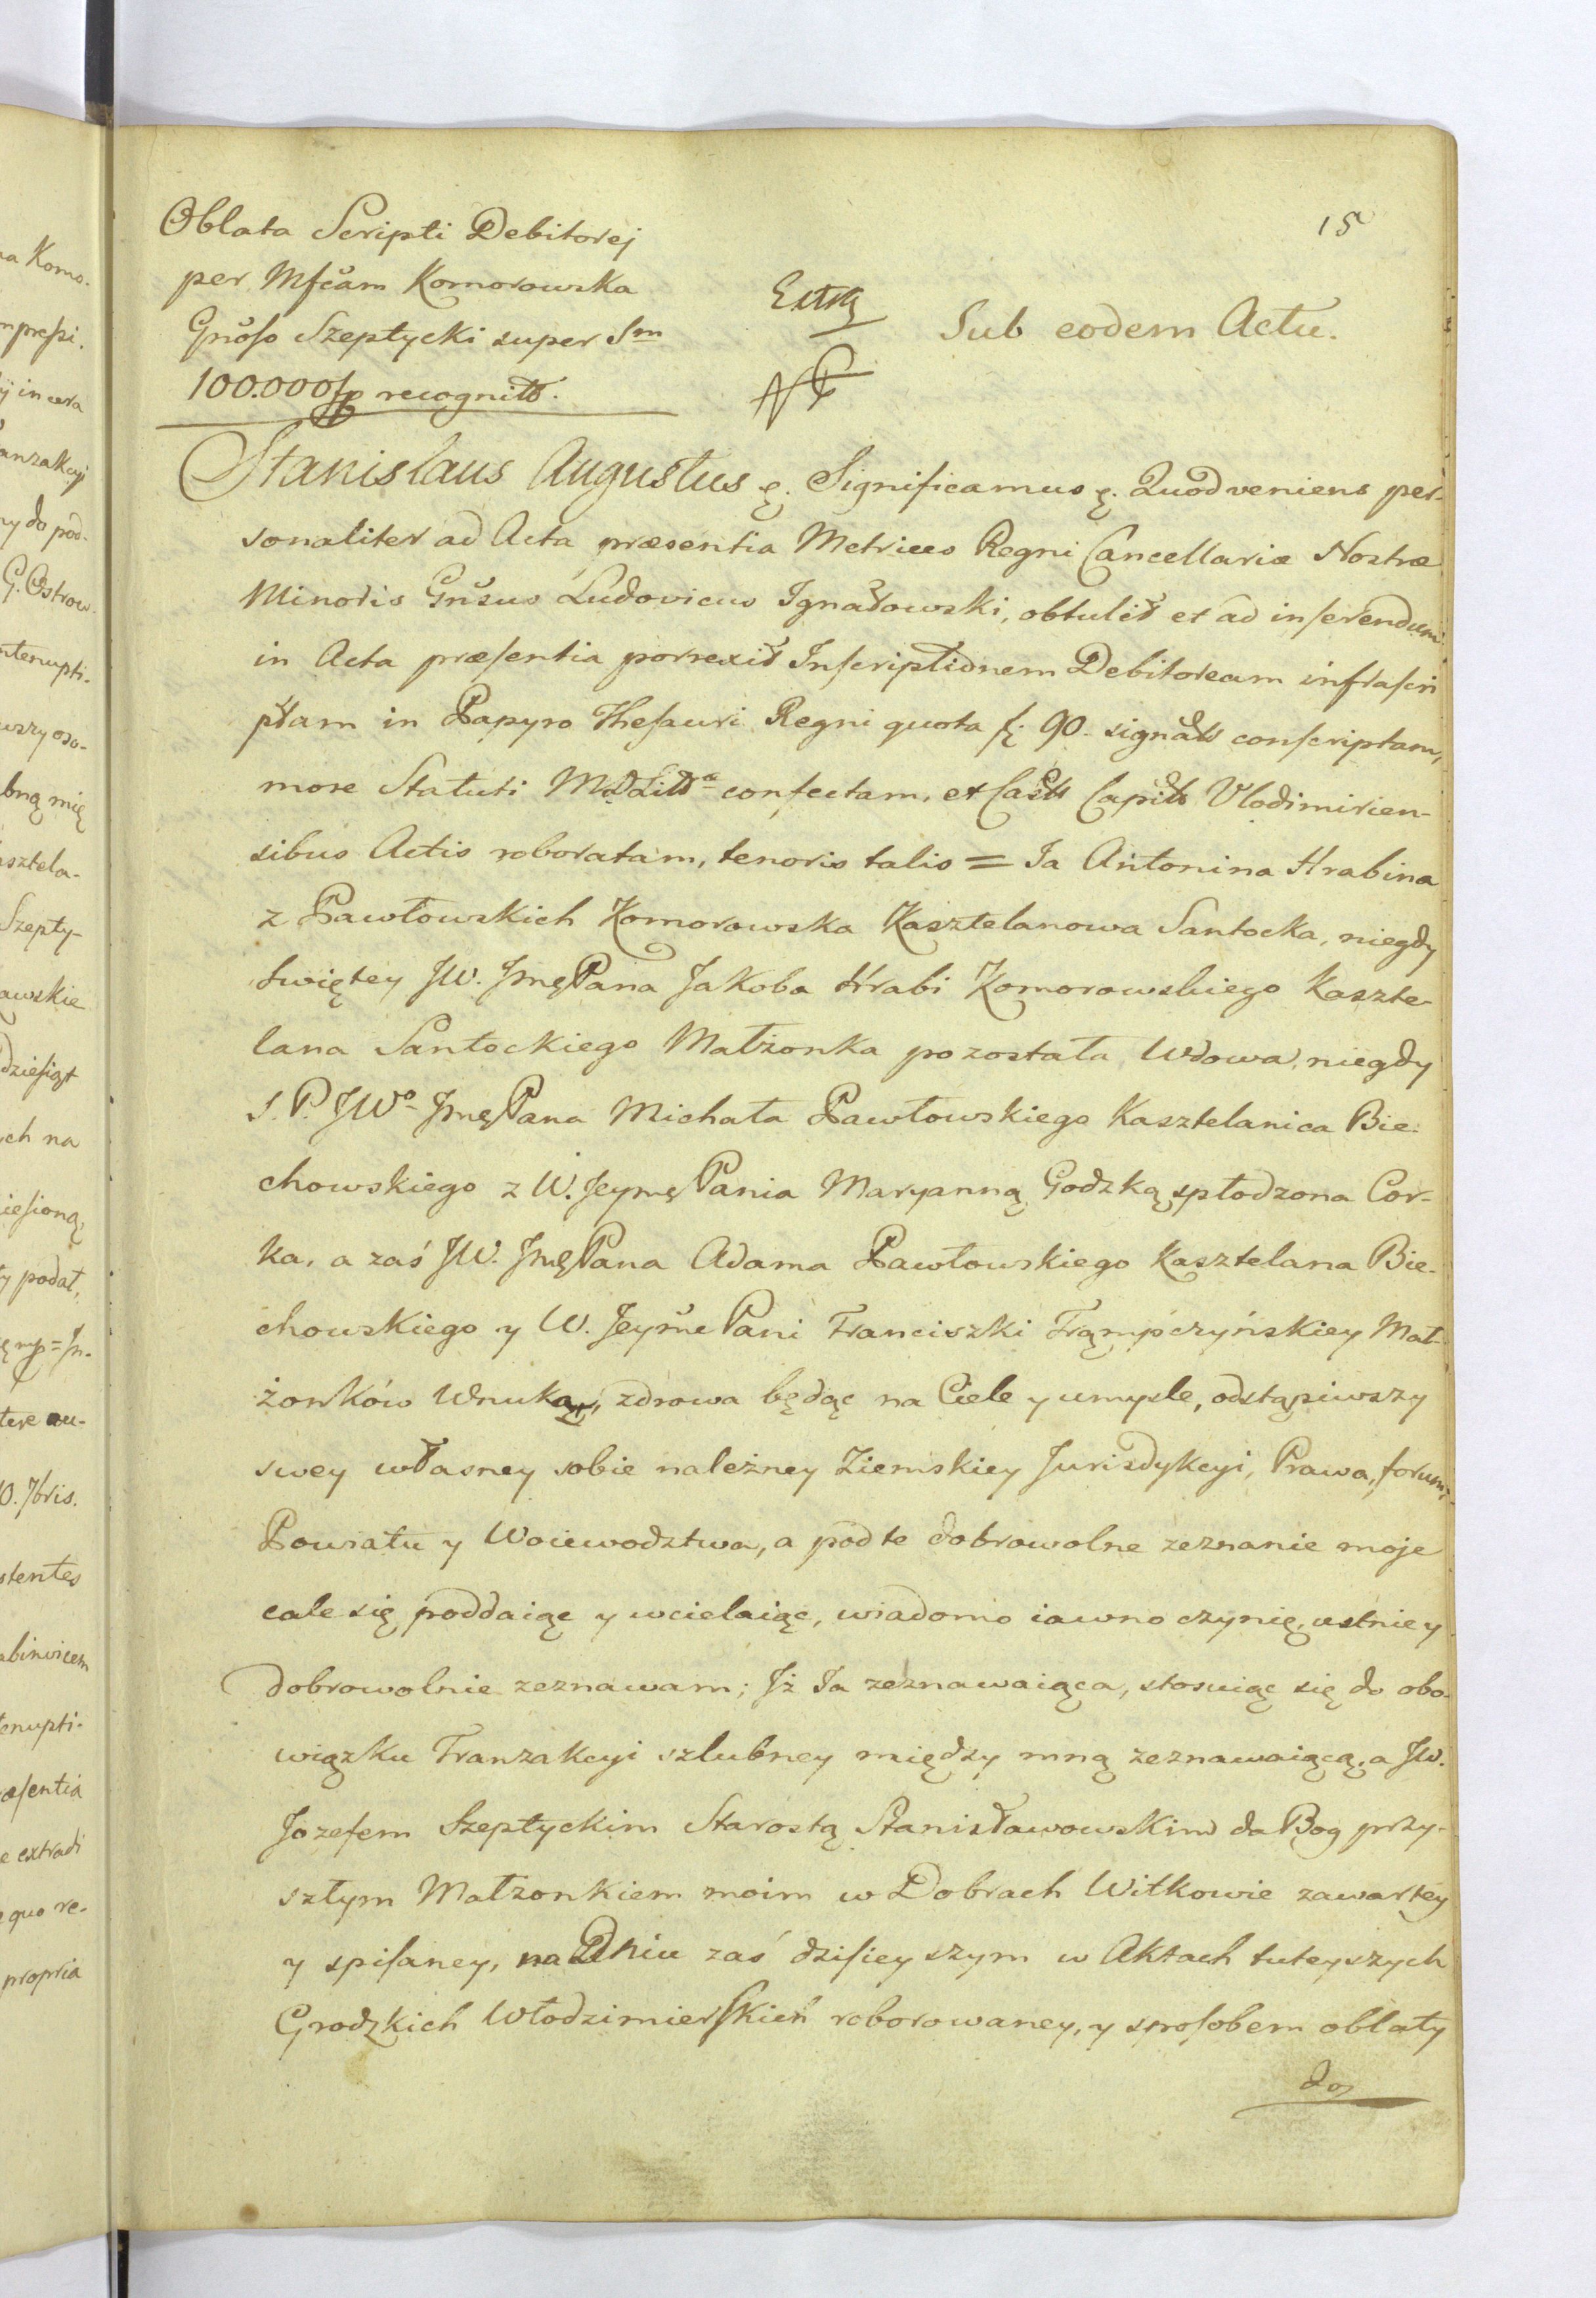 15
Oblata Scripti Debitorej
per Mfcam Komorowska
Gnoso Szeptycki super Sm
100.000 fp recognit.
Sub eodem Actu.
Stanislaus Augustus &. Significamus &. Quod veniens per-
sonaliter ad Acta præsentia Metrices Regni Cancellariæ Nostræ
Minoris Gnsus Ludovicus Ignatowski, obtulit et ad inserendum
in Acta præsentia porrexit Inscriptionem Debitoream infrascri
ptam in Papyro Thesauri Regni quota fl. 90. signat conscriptam,
more Statuti M D Litt confectam, et Cast Capit Vlodimirien-
sibus Actis roboratam, tenoris talis = Ja Antonina Hrabina
z Pawłowskich Komorowska Kasztelanowa Santocka, niegdy
swiętey JW. Jmę Pana Jakoba Hrabi Komorowskiego Kaszte-
lana Santockiego Małżonka pozostała Wdowa, niegdy
S. P. JWo Jmę Pana Michała Pawłowskiego Kasztelanica Bie-
chowskiego z W. Jeymę Pania Maryanną Godzką spłodzona Cor-
ka, a zaś JW. Jmę Pana Adama Pawłowskiego Kasztelana Bie-
chowskiego y W. Jeyme Pani Franciszki Trąmpczyńskiey Mał-
żonków Wnuka, zdrowa będąc na Ciele y umysle, odstąpiwszy
swey własney sobie należney Ziemskiey Jurisdykcyi, Prawa, forum,
Powiatu y Woiewodztwa, a pod te dobrowolne zeznanie moje
cale się poddaiąc y wcielaiąc, wiadomo iawno czynię, ustnie y
dobrowolnie zeznawam; Jż Ja zeznawaiąca, stosuiąc się do obo-
wiązku Tranzakcyi szlubney między mną zeznawaiącą, a JW.
Jozefem Szeptyckim Starostą Stanisławowskim da Bog przy-
szłym Małzonkiem moim w Dobrach Witkowie zawartey
y spisaney, na Dniu zaś dzisieyszym w Aktach tuteyszych
Grodzkich Włodzimierskich roborowaney, y sposobem oblaty
do